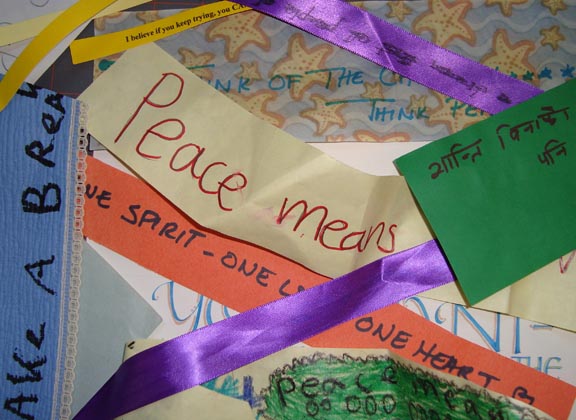 I believe if you keep trying, you CA
NK OF THE CH
THINK PE
Peace means
शान्ति बिनाको
पनि
Ake A Brea
NE SPIRIT - ONE L
ONE HEART
YO
ONT-
THE
peace mea